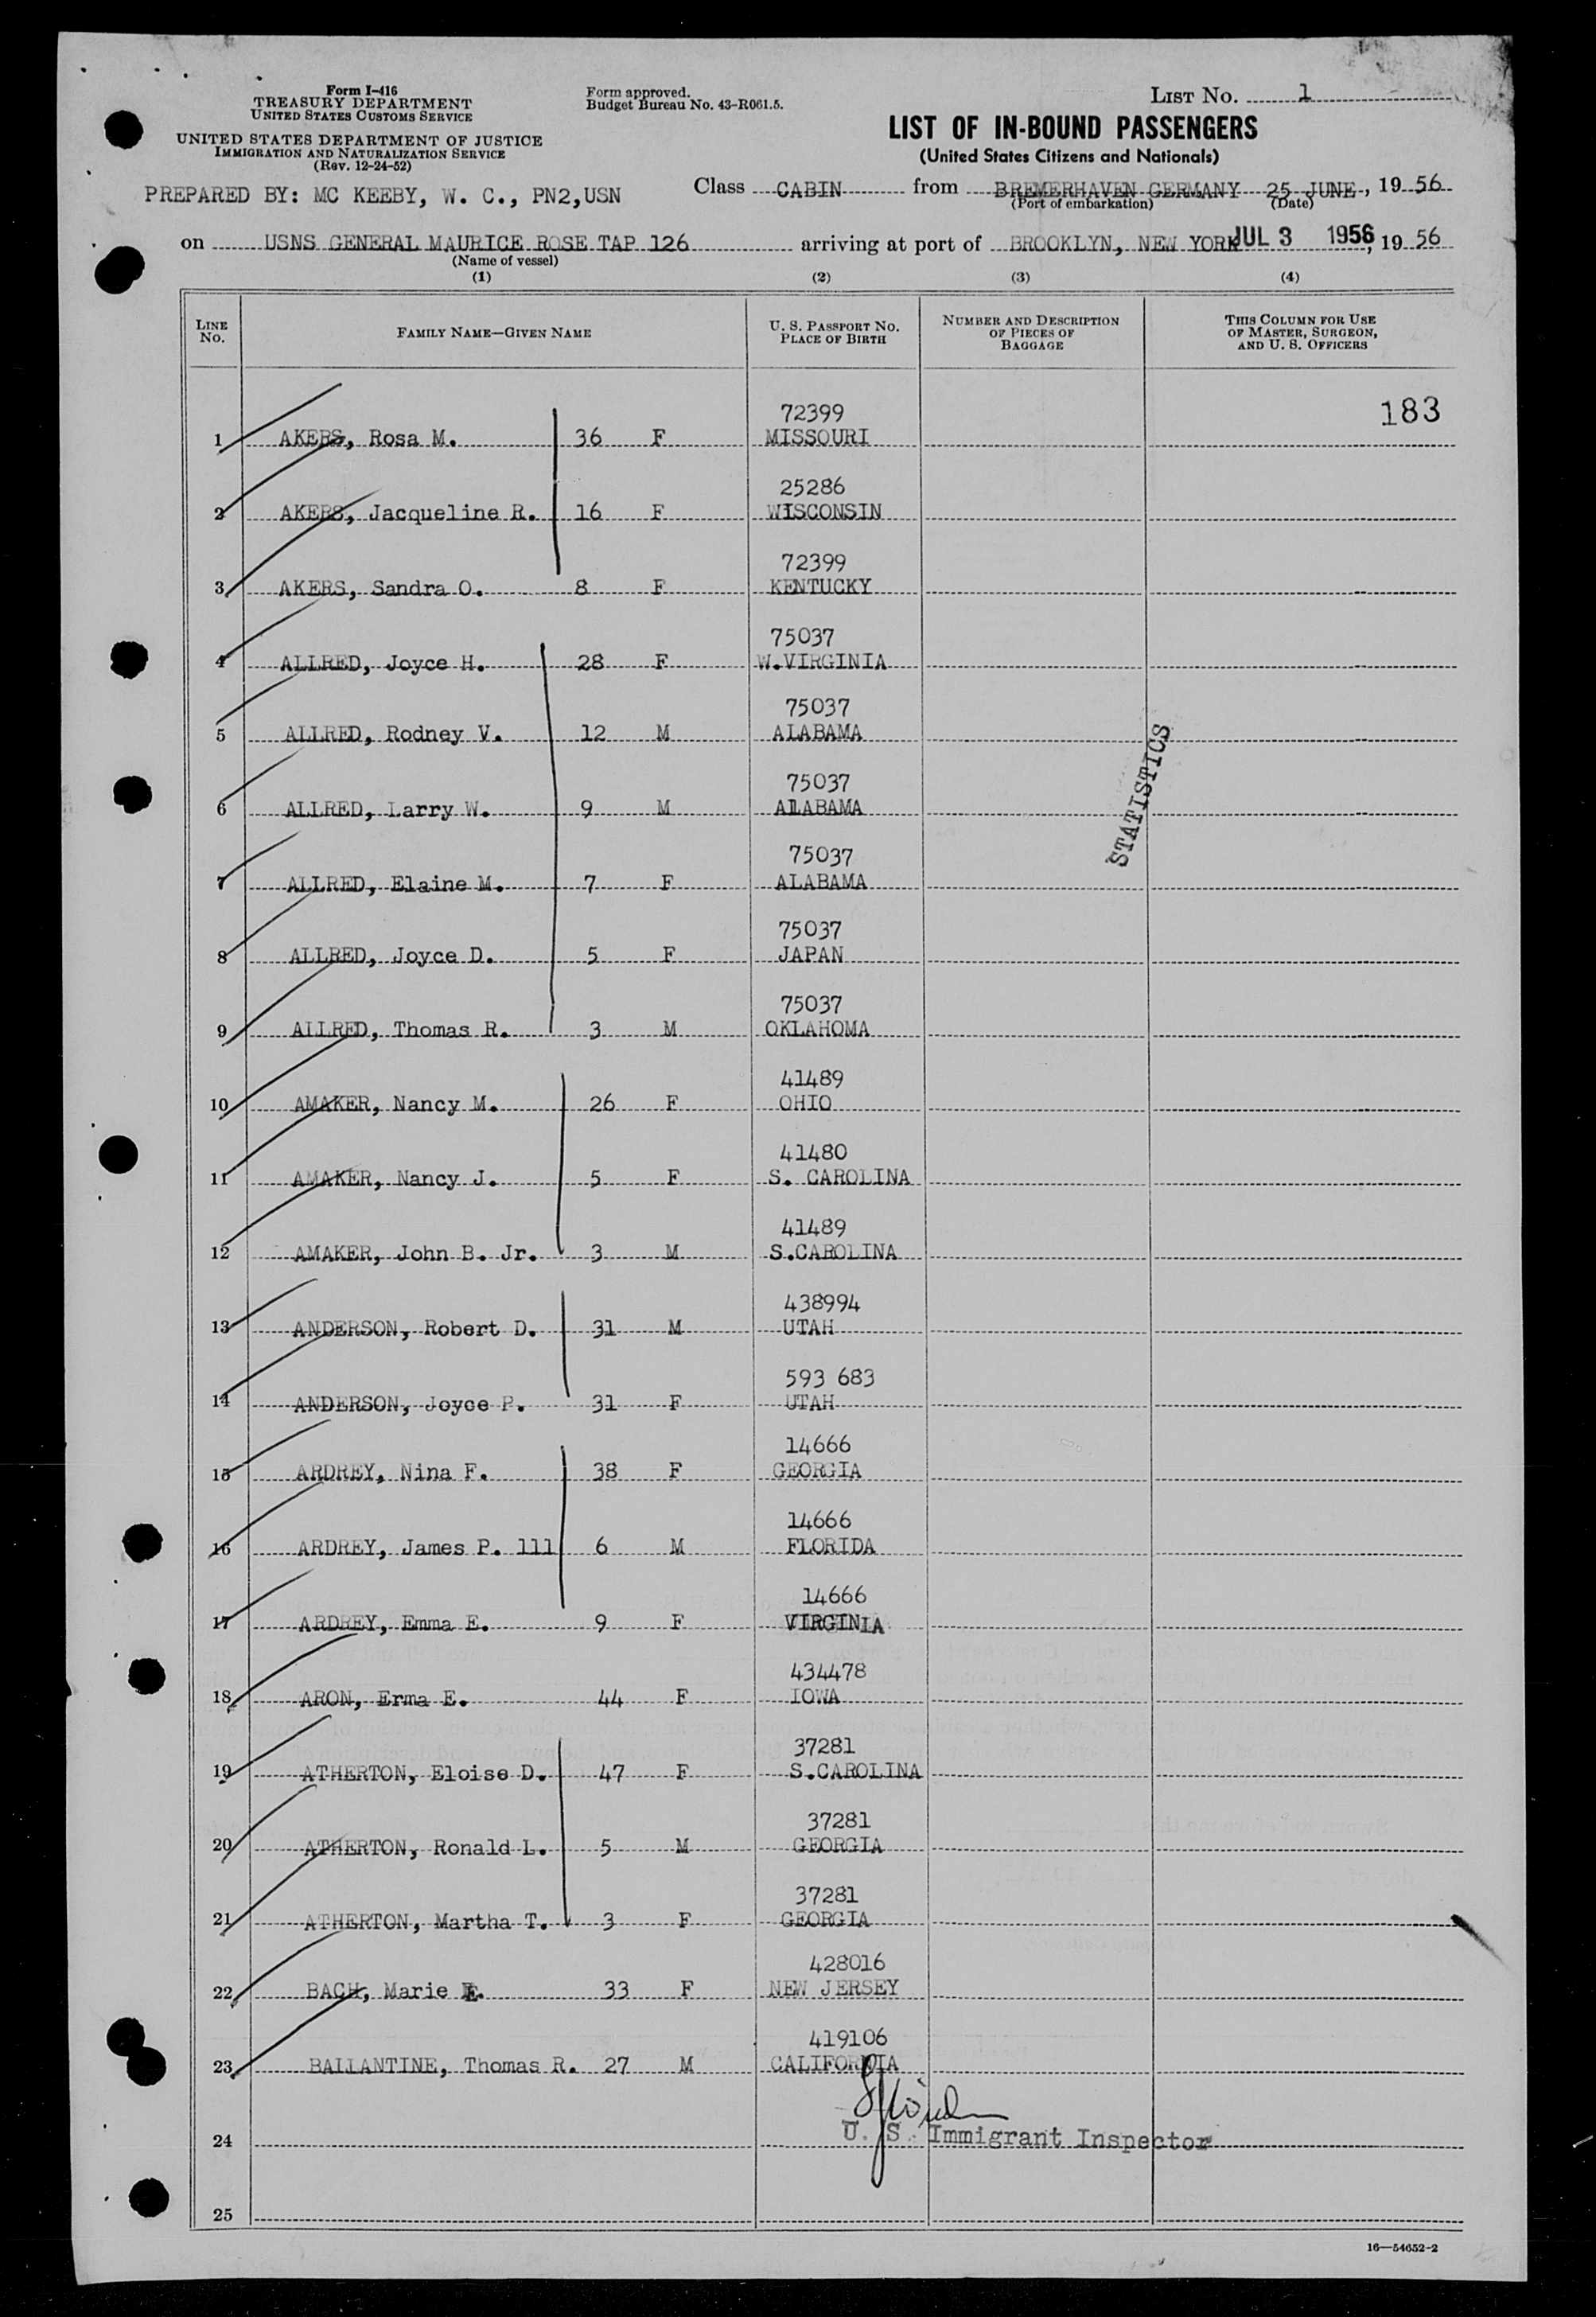 Form I-416
TREASURY DEPARTMENT
UNITED STATES CUSTOMS SERVICE
UNITED STATES DEPARTMENT OF JUSTICE
IMMIGRATION AND NATURALIZATION SERVICE
(Rev. 12-24-52)
Form approved.
Budget Bureau No. 43-R061.5.
LIST NO. 1
LIST OF IN-BOUND PASSENGERS
(United States Citizens and Nationals)
PREPARED BY: MC KEEBY, W. C., PN2,USN
Class CABIN from BREMERHAVEN GERMANY 25 JUNE, 19 56
(Port of embarkation) (Date)
on USNS GENERAL MAURICE ROSE TAP 126 arriving at port of BROOKLYN, NEW YORK JUL 3 1956, 19 56
(Name of vessel)
(1) (2) (3) (4)
LINE NO. FAMILY NAME—GIVEN NAME U. S. PASSPORT NO. PLACE OF BIRTH NUMBER AND DESCRIPTION OF PIECES OF BAGGAGE THIS COLUMN FOR USE OF MASTER, SURGEON, AND U. S. OFFICERS
72399 183
1 AKERS, Rosa M. 36 F MISSOURI
25286
2 AKERS, Jacqueline R. 16 F WISCONSIN
72399
3 AKERS, Sandra O. 8 F KENTUCKY
75037
4 ALLRED, Joyce H. 28 F W.VIRGINIA
75037
5 ALLRED, Rodney V. 12 M ALABAMA
STATISTICS
75037
6 ALLRED, Larry W. 9 M ALABAMA
75037
7 ALLRED, Elaine M. 7 F ALABAMA
75037
8 ALLRED, Joyce D. 5 F JAPAN
75037
9 ALLRED, Thomas R. 3 M OKLAHOMA
41489
10 AMAKER, Nancy M. 26 F OHIO
41480
11 AMAKER, Nancy J. 5 F S. CAROLINA
41489
12 AMAKER, John B. Jr. 3 M S.CAROLINA
438994
13 ANDERSON, Robert D. 31 M UTAH
593 683
14 ANDERSON, Joyce P. 31 F UTAH
14666
15 ARDREY, Nina F. 38 F GEORGIA
14666
16 ARDREY, James P. 111 6 M FLORIDA
14666
17 ARDREY, Emma E. 9 F VIRGINIA
434478
18 ARON, Erma E. 44 F IOWA
37281
19 ATHERTON, Eloise D. 47 F S.CAROLINA
37281
20 ATHERTON, Ronald L. 5 M GEORGIA
37281
21 ATHERTON, Martha T. 3 F GEORGIA
428016
22 BACH, Marie E. 33 F NEW JERSEY
419106
23 BALLANTINE, Thomas R. 27 M CALIFORNIA
24 U. S. Immigrant Inspector
25
16—54652-2